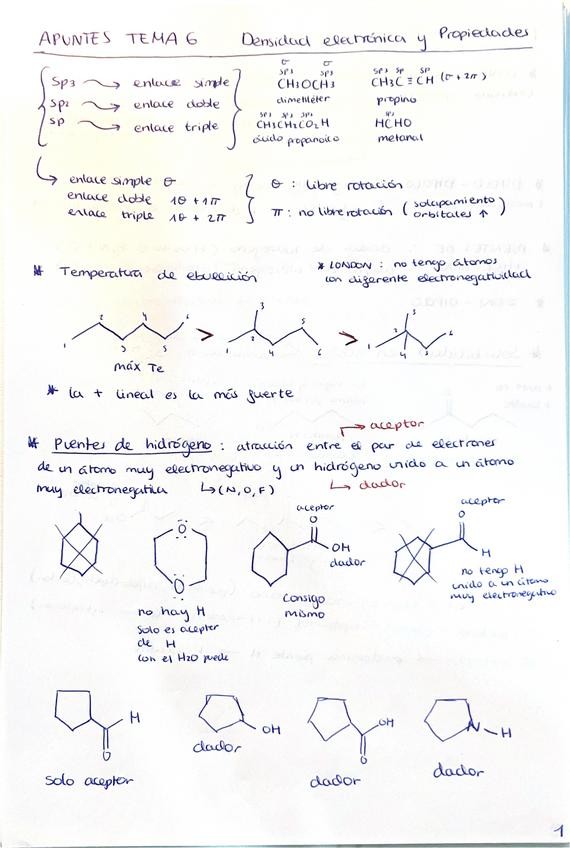 APUNTES TEMA 6 Densidad electrónica y Propiedades
sp3 → enlace simple
sp2 → enlace doble
sp → enlace triple
σ σ
sp3 sp3
CH3OCH3
dimetiléter
sp3 sp sp
CH3C≡CH (σ+2π)
propino
sp3 sp3 sp2
CH3CH2CO2H
ácido propanoico
sp2
HCHO
metanal
↳ enlace simple σ
enlace doble 1σ + 1π
enlace triple 1σ + 2π
σ : libre rotación
π : no libre rotación (solapamiento orbitales ↑)
* Temperatura de ebullición
* LONDON : no tengo átomos
con diferente electronegatividad
1 2 3 4 5 6 > 1 2 3 4 5 6 > 1 2 3 4 5 6
máx Te
* la + lineal es la más fuerte
→ aceptor
* Puentes de hidrógeno : atracción entre el par de electrones
de un átomo muy electronegativo y un hidrógeno unido a un átomo
muy electronegativa ↳ (N, O, F) ↳ dador
O
O
no hay H
solo es aceptor
de H
con el H2O puede
aceptor
O
OH
dador
consigo
mismo
aceptor
O
H
no tengo H
unido a un átomo
muy electronegativo
H
O
solo aceptor
OH
dador
OH
O
dador
N-H
dador
1